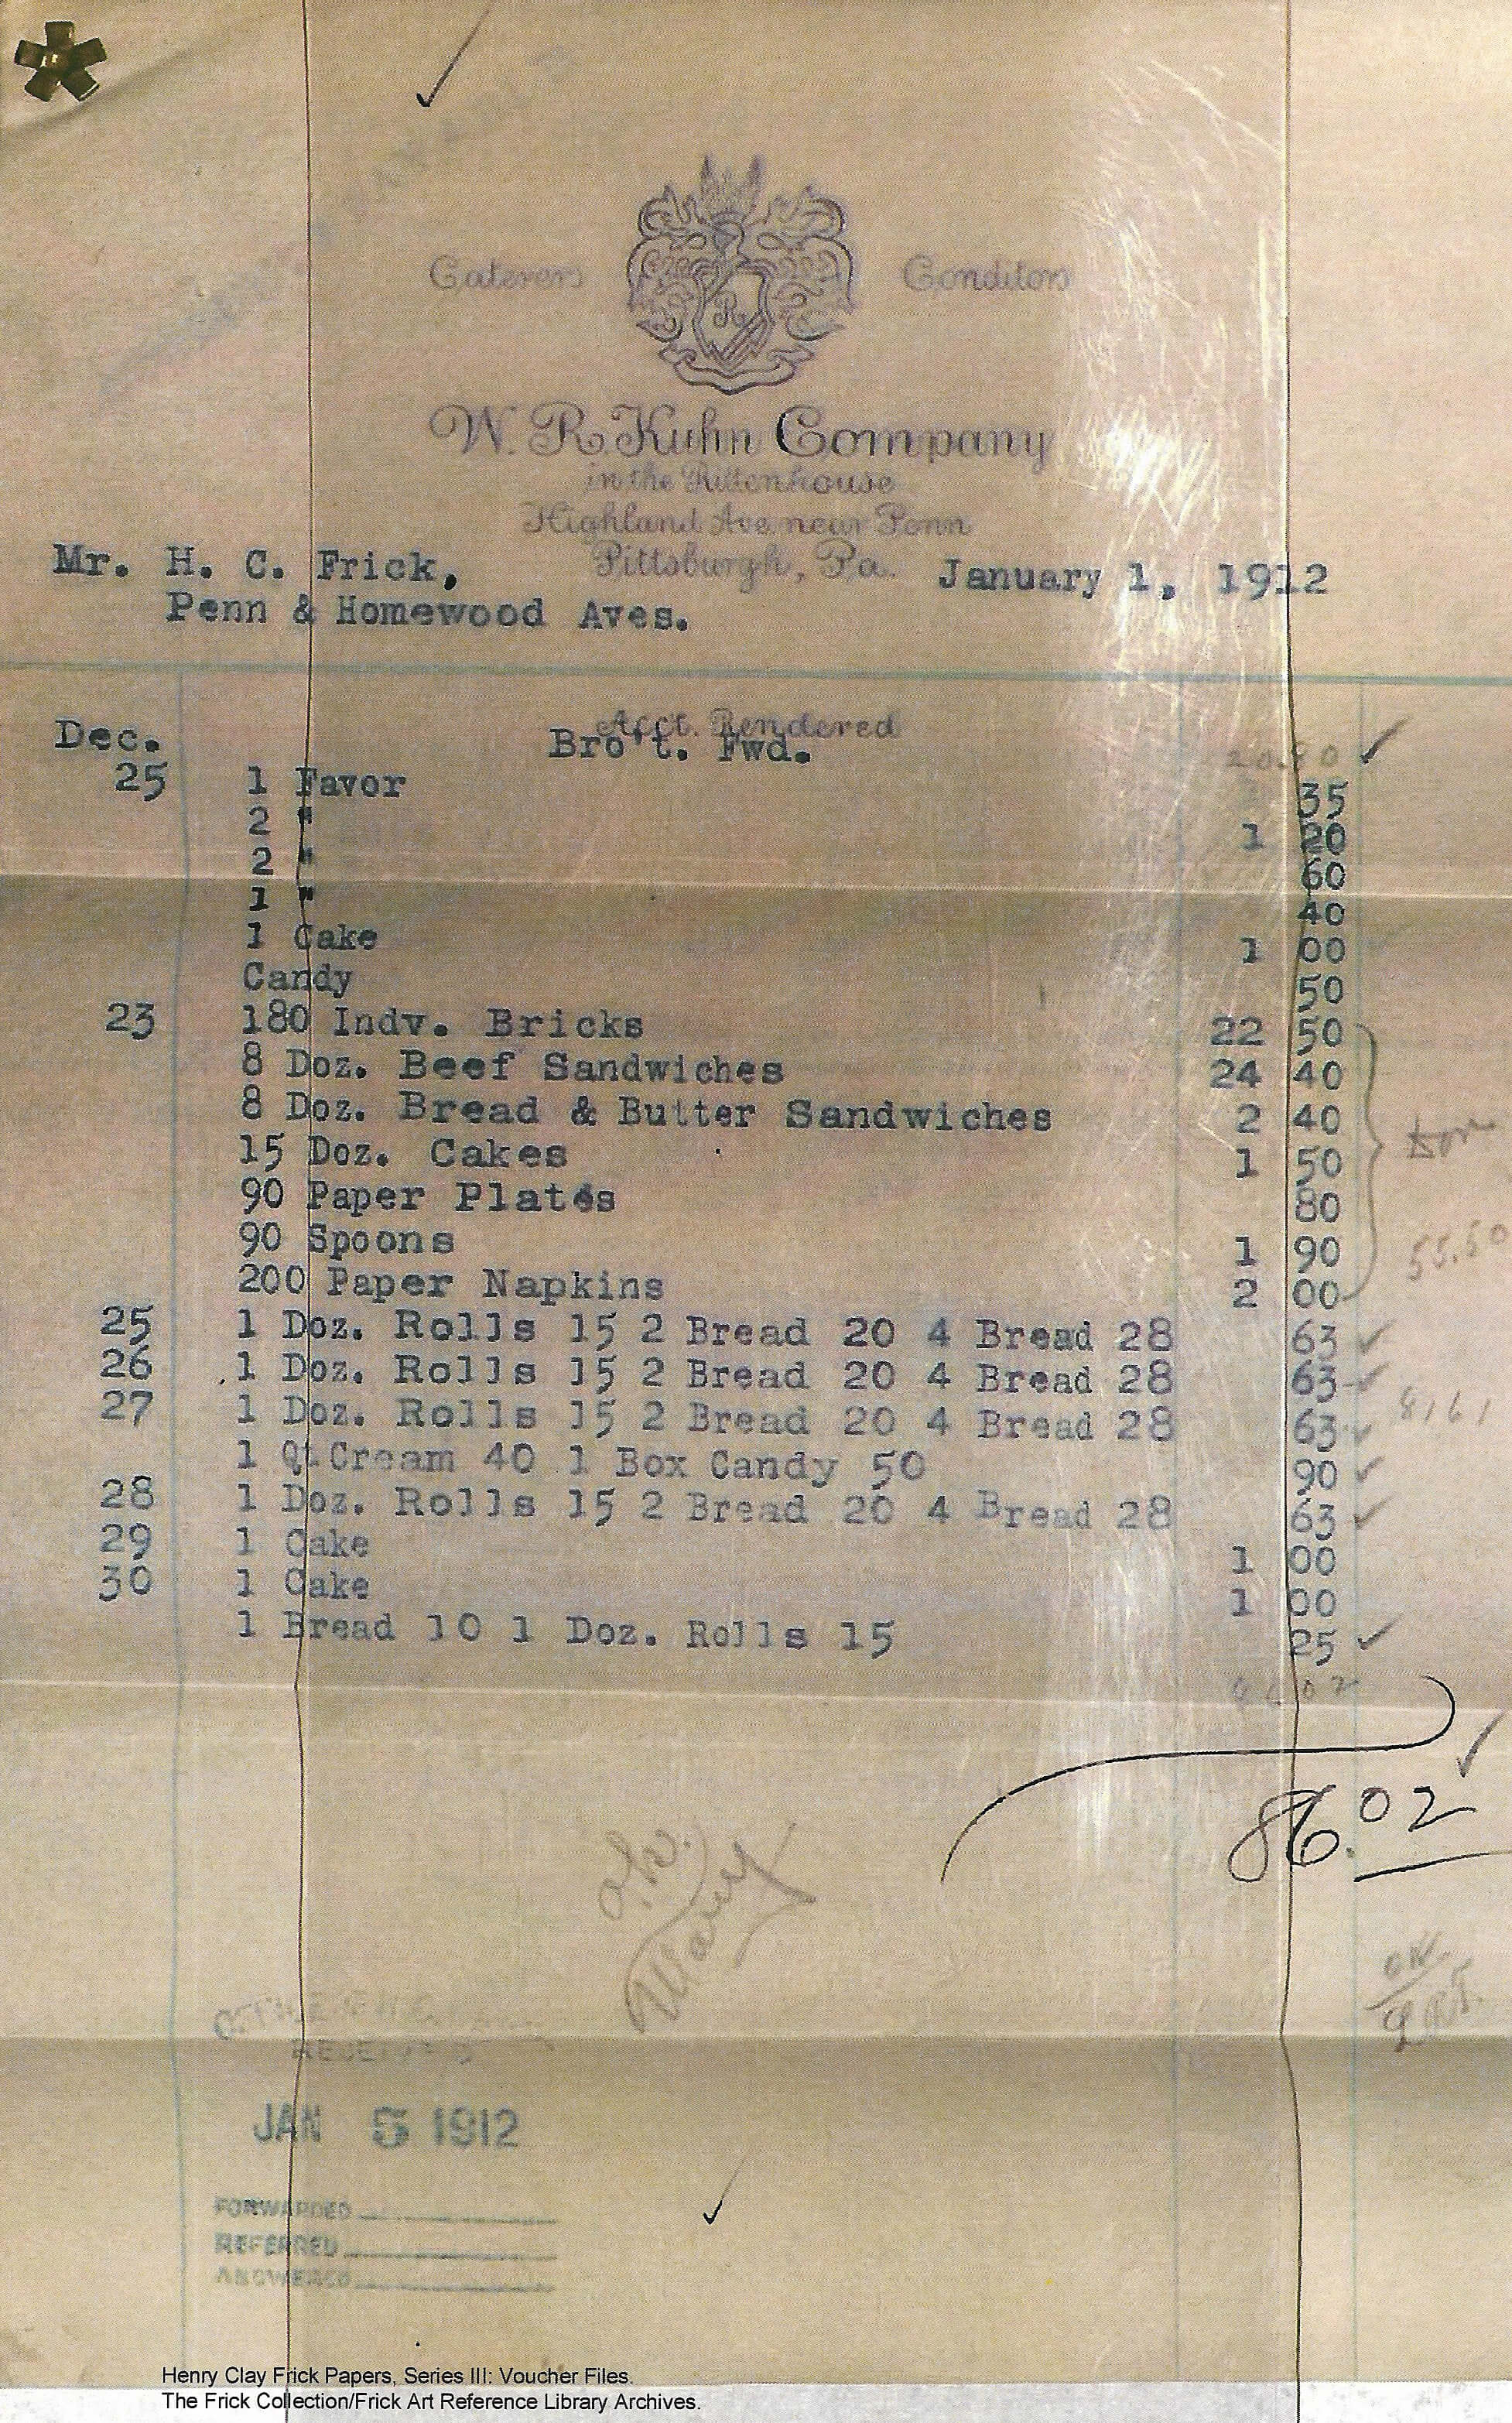 Caterers Conditors
W. R. Kuhn Company
in the Rittenhouse
Highland Ave near Penn
Pittsburgh, Pa.
Mr. H. C. Frick, January 1, 1912
Penn & Homewood Aves.
Acct. Rendered
Dec. Bro't. Fwd.
25 1 Favor 35
2 " 1 20
2 " 60
1 " 40
1 Cake 1 00
Candy 50
23 180 Indv. Bricks 22 50
8 Doz. Beef Sandwiches 24 40
8 Doz. Bread & Butter Sandwiches 2 40
15 Doz. Cakes 1 50
90 Paper Plates 80
90 Spoons 1 90
200 Paper Napkins 2 00
55.50
25 1 Doz. Rolls 15 2 Bread 20 4 Bread 28 63
26 1 Doz. Rolls 15 2 Bread 20 4 Bread 28 63
27 1 Doz. Rolls 15 2 Bread 20 4 Bread 28 63
8161
1 Qt Cream 40 1 Box Candy 50 90
28 1 Doz. Rolls 15 2 Bread 20 4 Bread 28 63
29 1 Cake 1 00
30 1 Cake 1 00
1 Bread 10 1 Doz. Rolls 15 25
86.02
O.K.
OK
RECEIVED
JAN 5 1912
FORWARDED
REFERRED
ANSWERED
Henry Clay Frick Papers, Series III: Voucher Files.
The Frick Collection/Frick Art Reference Library Archives.